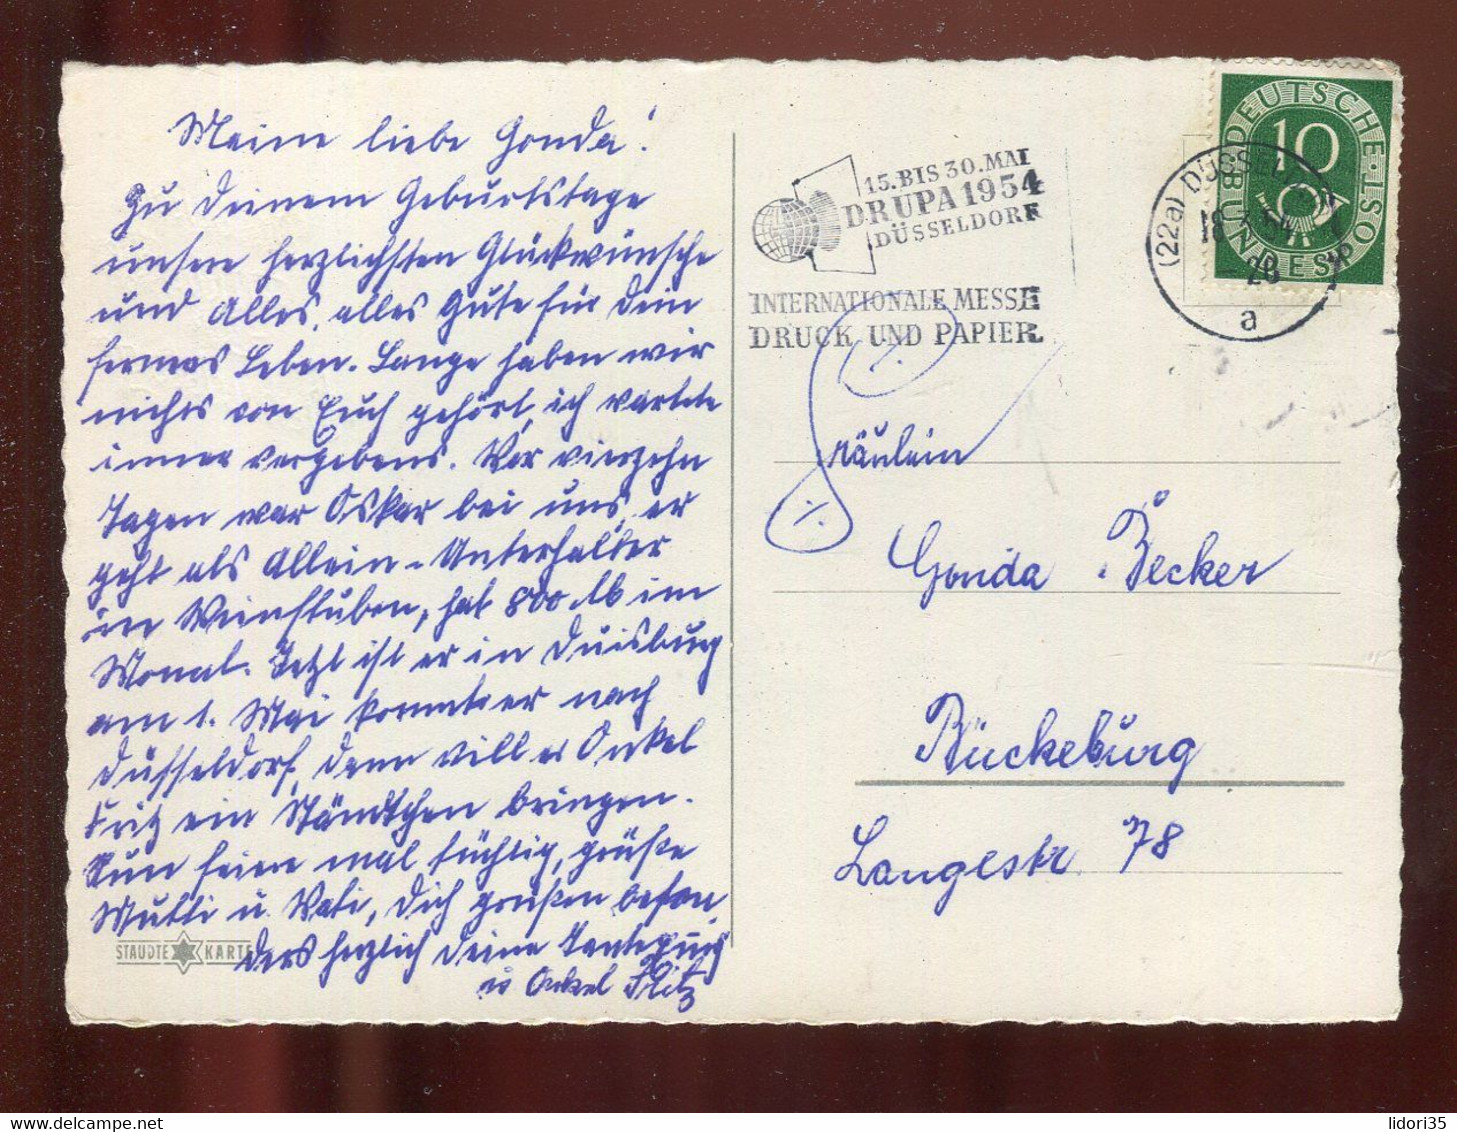 Meine liebe Gonda!
Zu Deinem Geburtstage
unsere herzlichsten Glückwünsche
und Alles, alles Gute für Dein
ferneres Leben. Lange haben wir
nichts von Euch gehört, ich wartete
immer vergebens. Vor vierzehn
Tagen war Oskar bei uns, er
geht als Allein-Unterhalter
in Weinstuben, hat 800 M im
Monat. Jetzt ist er in Duisburg
am 1. Mai kommt er nach
Düsseldorf, dann will er Onkel
Fritz ein Ständchen bringen.
Nun feiere mal tüchtig, grüße
Mutti u. Vati, Dich grüßen beson
ders herzlich Deine Tante
u Onkel Fritz
STAUDTE KARTE
15. BIS 30. MAI
DRUPA 1954
DÜSSELDORF
INTERNATIONALE MESSE
DRUCK UND PAPIER
(22a) DÜSSELDORF
18.3.54
20
a
DEUTSCHE BUNDESPOST
10
Fräulein
Gonda Becker
Bückeburg
Langestr. 78
lidori35